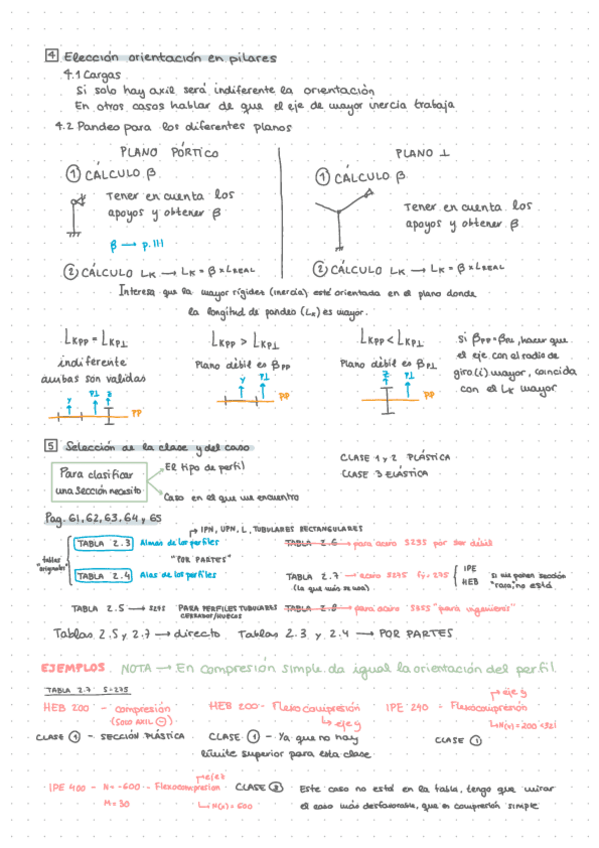 4 Elección orientación en pilares
4.1 Cargas
Si solo hay axil será indiferente la orientación
En otros casos hablar de que el eje de mayor inercia trabaja
4.2 Pandeo para los diferentes planos
PLANO PÓRTICO
① CÁLCULO β
Tener en cuenta los
apoyos y obtener β
β → p. 111
② CÁLCULO LK → LK = β × LREAL
PLANO ⊥
① CÁLCULO β
Tener en cuenta los
apoyos y obtener β
② CÁLCULO LK → LK = β × LREAL
Interesa que la mayor rigidez (inercia) esté orientada en el plano donde
la longitud de pandeo (LK) es mayor.
LKPP = LKP⊥
indiferente
ambas son validas
y P⊥ z
PP
LKPP > LKP⊥
Plano débil es βPP
y P⊥
PP
LKPP < LKP⊥
Plano débil es βP⊥
z P⊥
PP
Si βPP = βP⊥, hacer que
el eje con el radio de
giro (i) mayor, coincida
con el LK mayor
5 Selección de la clase y del caso
Para clasificar
una sección necesito
El tipo de perfil
Caso en el que me encuentro
CLASE 1 y 2 PLÁSTICA
CLASE 3 ELÁSTICA
Pag. 61, 62, 63, 64 y 65
IPN, UPN, L, TUBULARES RECTANGULARES
tablas "originales"
TABLA 2.3 Almas de los perfiles
"POR PARTES"
TABLA 2.4 Alas de los perfiles
TABLA 2.6 → para acero S235 por ser débil
TABLA 2.7 → acero S275 fy = 275
(la que más se usa)
IPE
HEB
si me ponen sección
"rara, no está
TABLA 2.5 → S275 PARA PERFILES TUBULARES
CERRADOS/HUECAS
TABLA 2.8 → para acero S355 "para ingenieros"
Tablas 2.5 y 2.7 → directo Tablas 2.3 y 2.4 → POR PARTES
EJEMPLOS NOTA → En compresión simple da igual la orientación del perfil.
TABLA 2.7 S-275
HEB 200 - compresión
(SOLO AXIL ⊖)
CLASE ① - SECCIÓN PLÁSTICA
HEB 200 - Flexocompresión
eje y
CLASE ① - Ya que no hay
límite superior para esta clase
eje y
IPE 240 - Flexocompresión
CLASE ①
eje y
IPE 400 - N = -600 - Flexocompresion
M = 30
N(x) = 600
CLASE ③
Este caso no está en la tabla, tengo que mirar
el caso más desfavorable, que es compresión simple